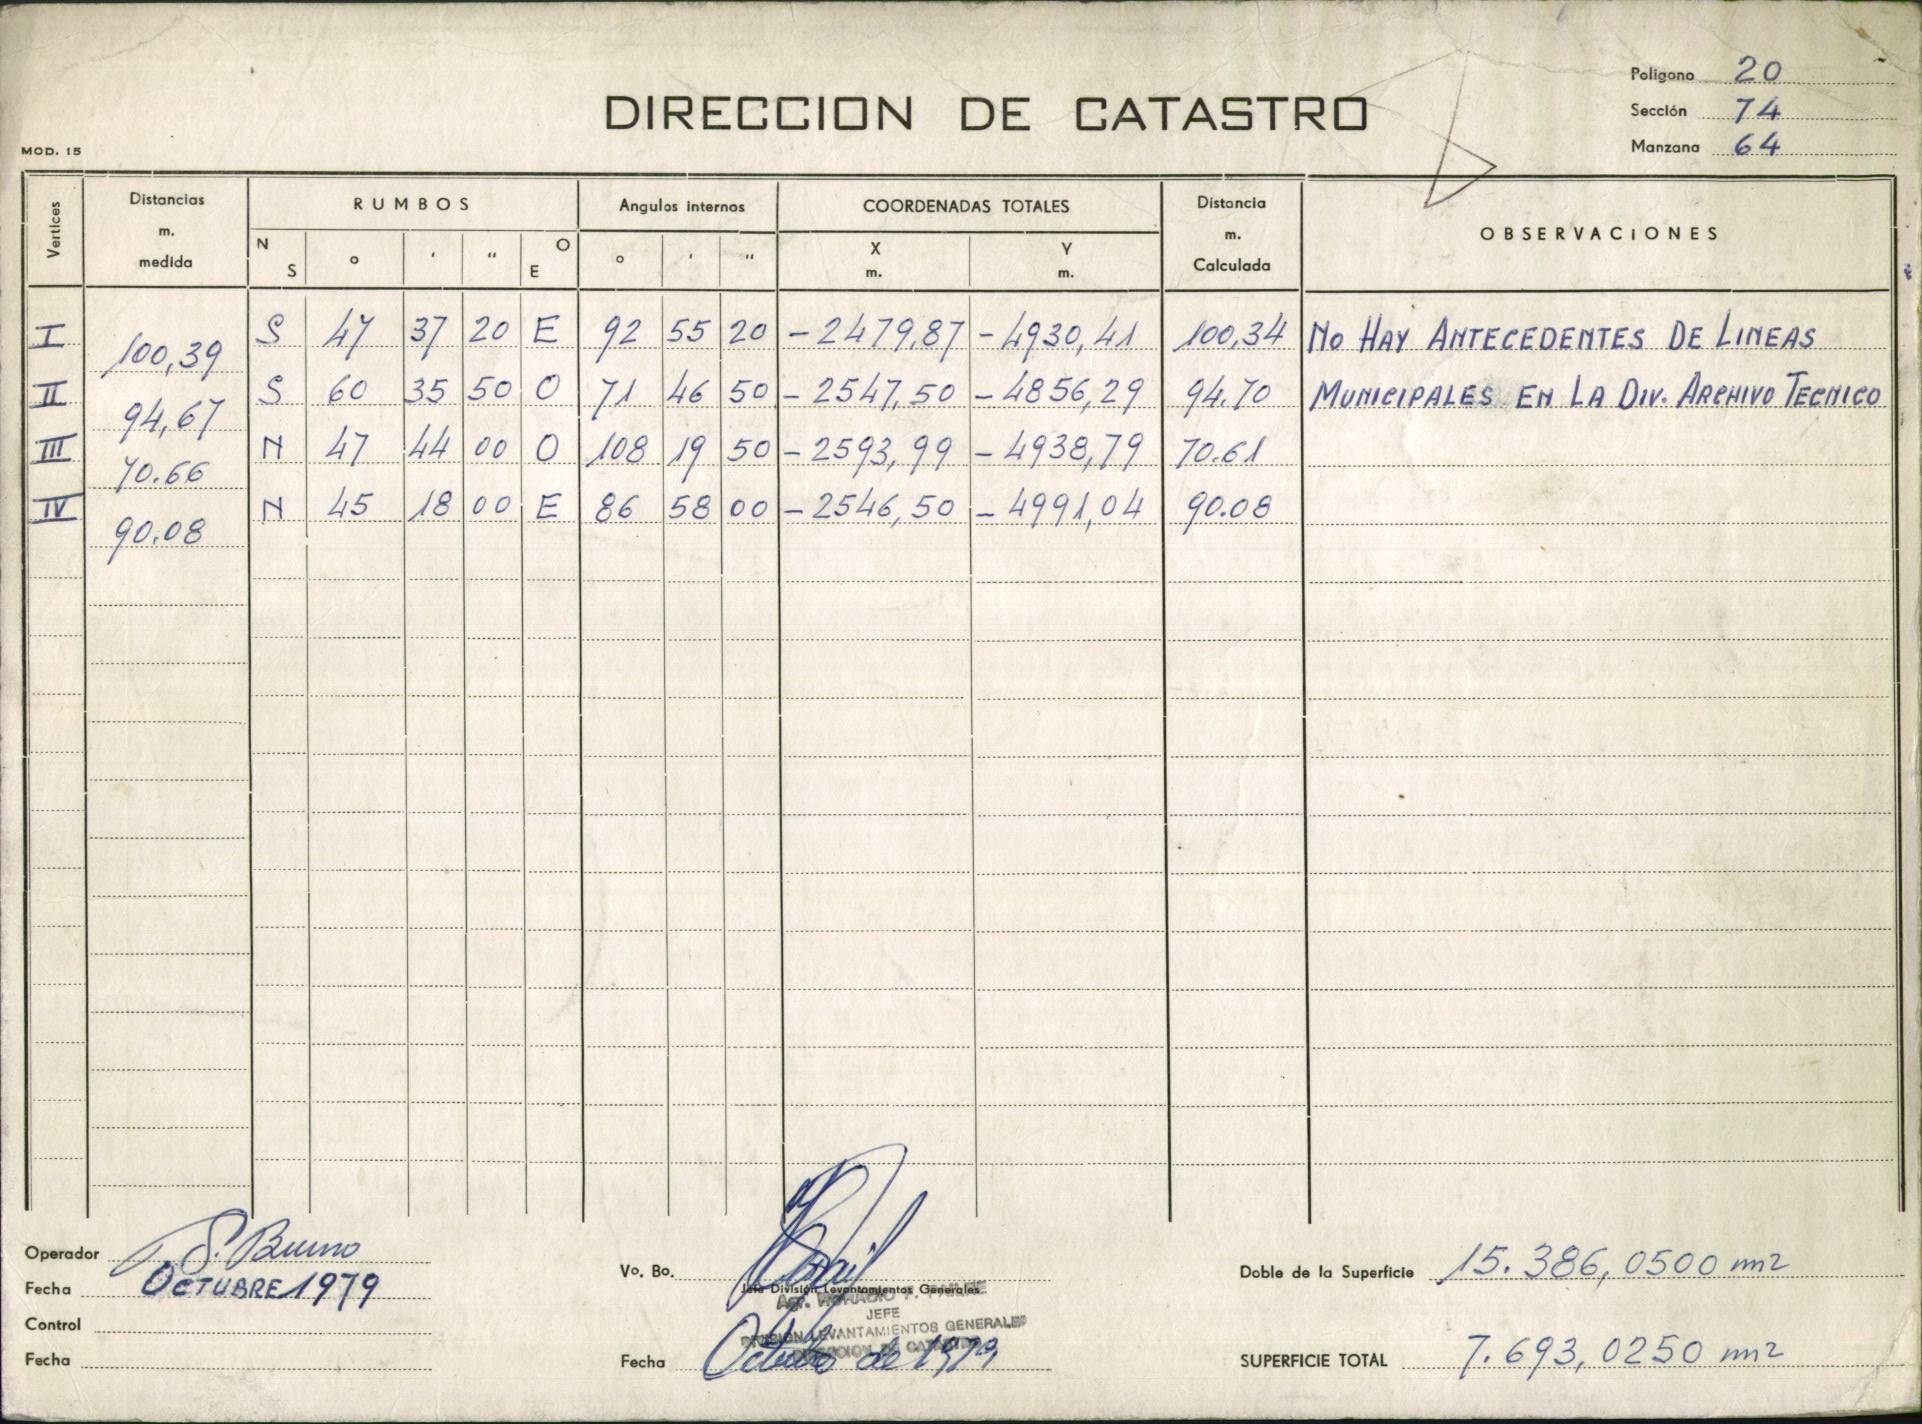 Poligono 20
DIRECCION DE CATASTRO
Sección 74
MOD. 15
Manzana 64
Vertices
Distancias m. medida
RUMBOS
N S ° ' " O E
Angulos internos
° ' "
COORDENADAS TOTALES
X m. Y m.
Distancia m. Calculada
OBSERVACiONES
I 100,39 S 47 37 20 E 92 55 20 -2479,87 -4930,41 100,34 No HAY ANTECEDENTES DE LINEAS
II 94,67 S 60 35 50 O 71 46 50 -2547,50 -4856,29 94.70 MUNICIPALES EN LA DIV. ARCHIVO TECNICO
III 70.66 N 47 44 00 O 108 19 50 -2593,99 -4938,79 70.61
IV 90.08 N 45 18 00 E 86 58 00 -2546,50 -4991,04 90.08
Operador
Fecha OCTUBRE 1979
Control
Fecha
Vo. Bo.
Jefe División Levantamientos Generales
JEFE
DIVISION LEVANTAMIENTOS GENERALES
DIRECCION DE CATASTRO
Fecha Octubre de 1979
Doble de la Superficie 15.386,0500 m2
SUPERFICIE TOTAL 7.693,0250 m2